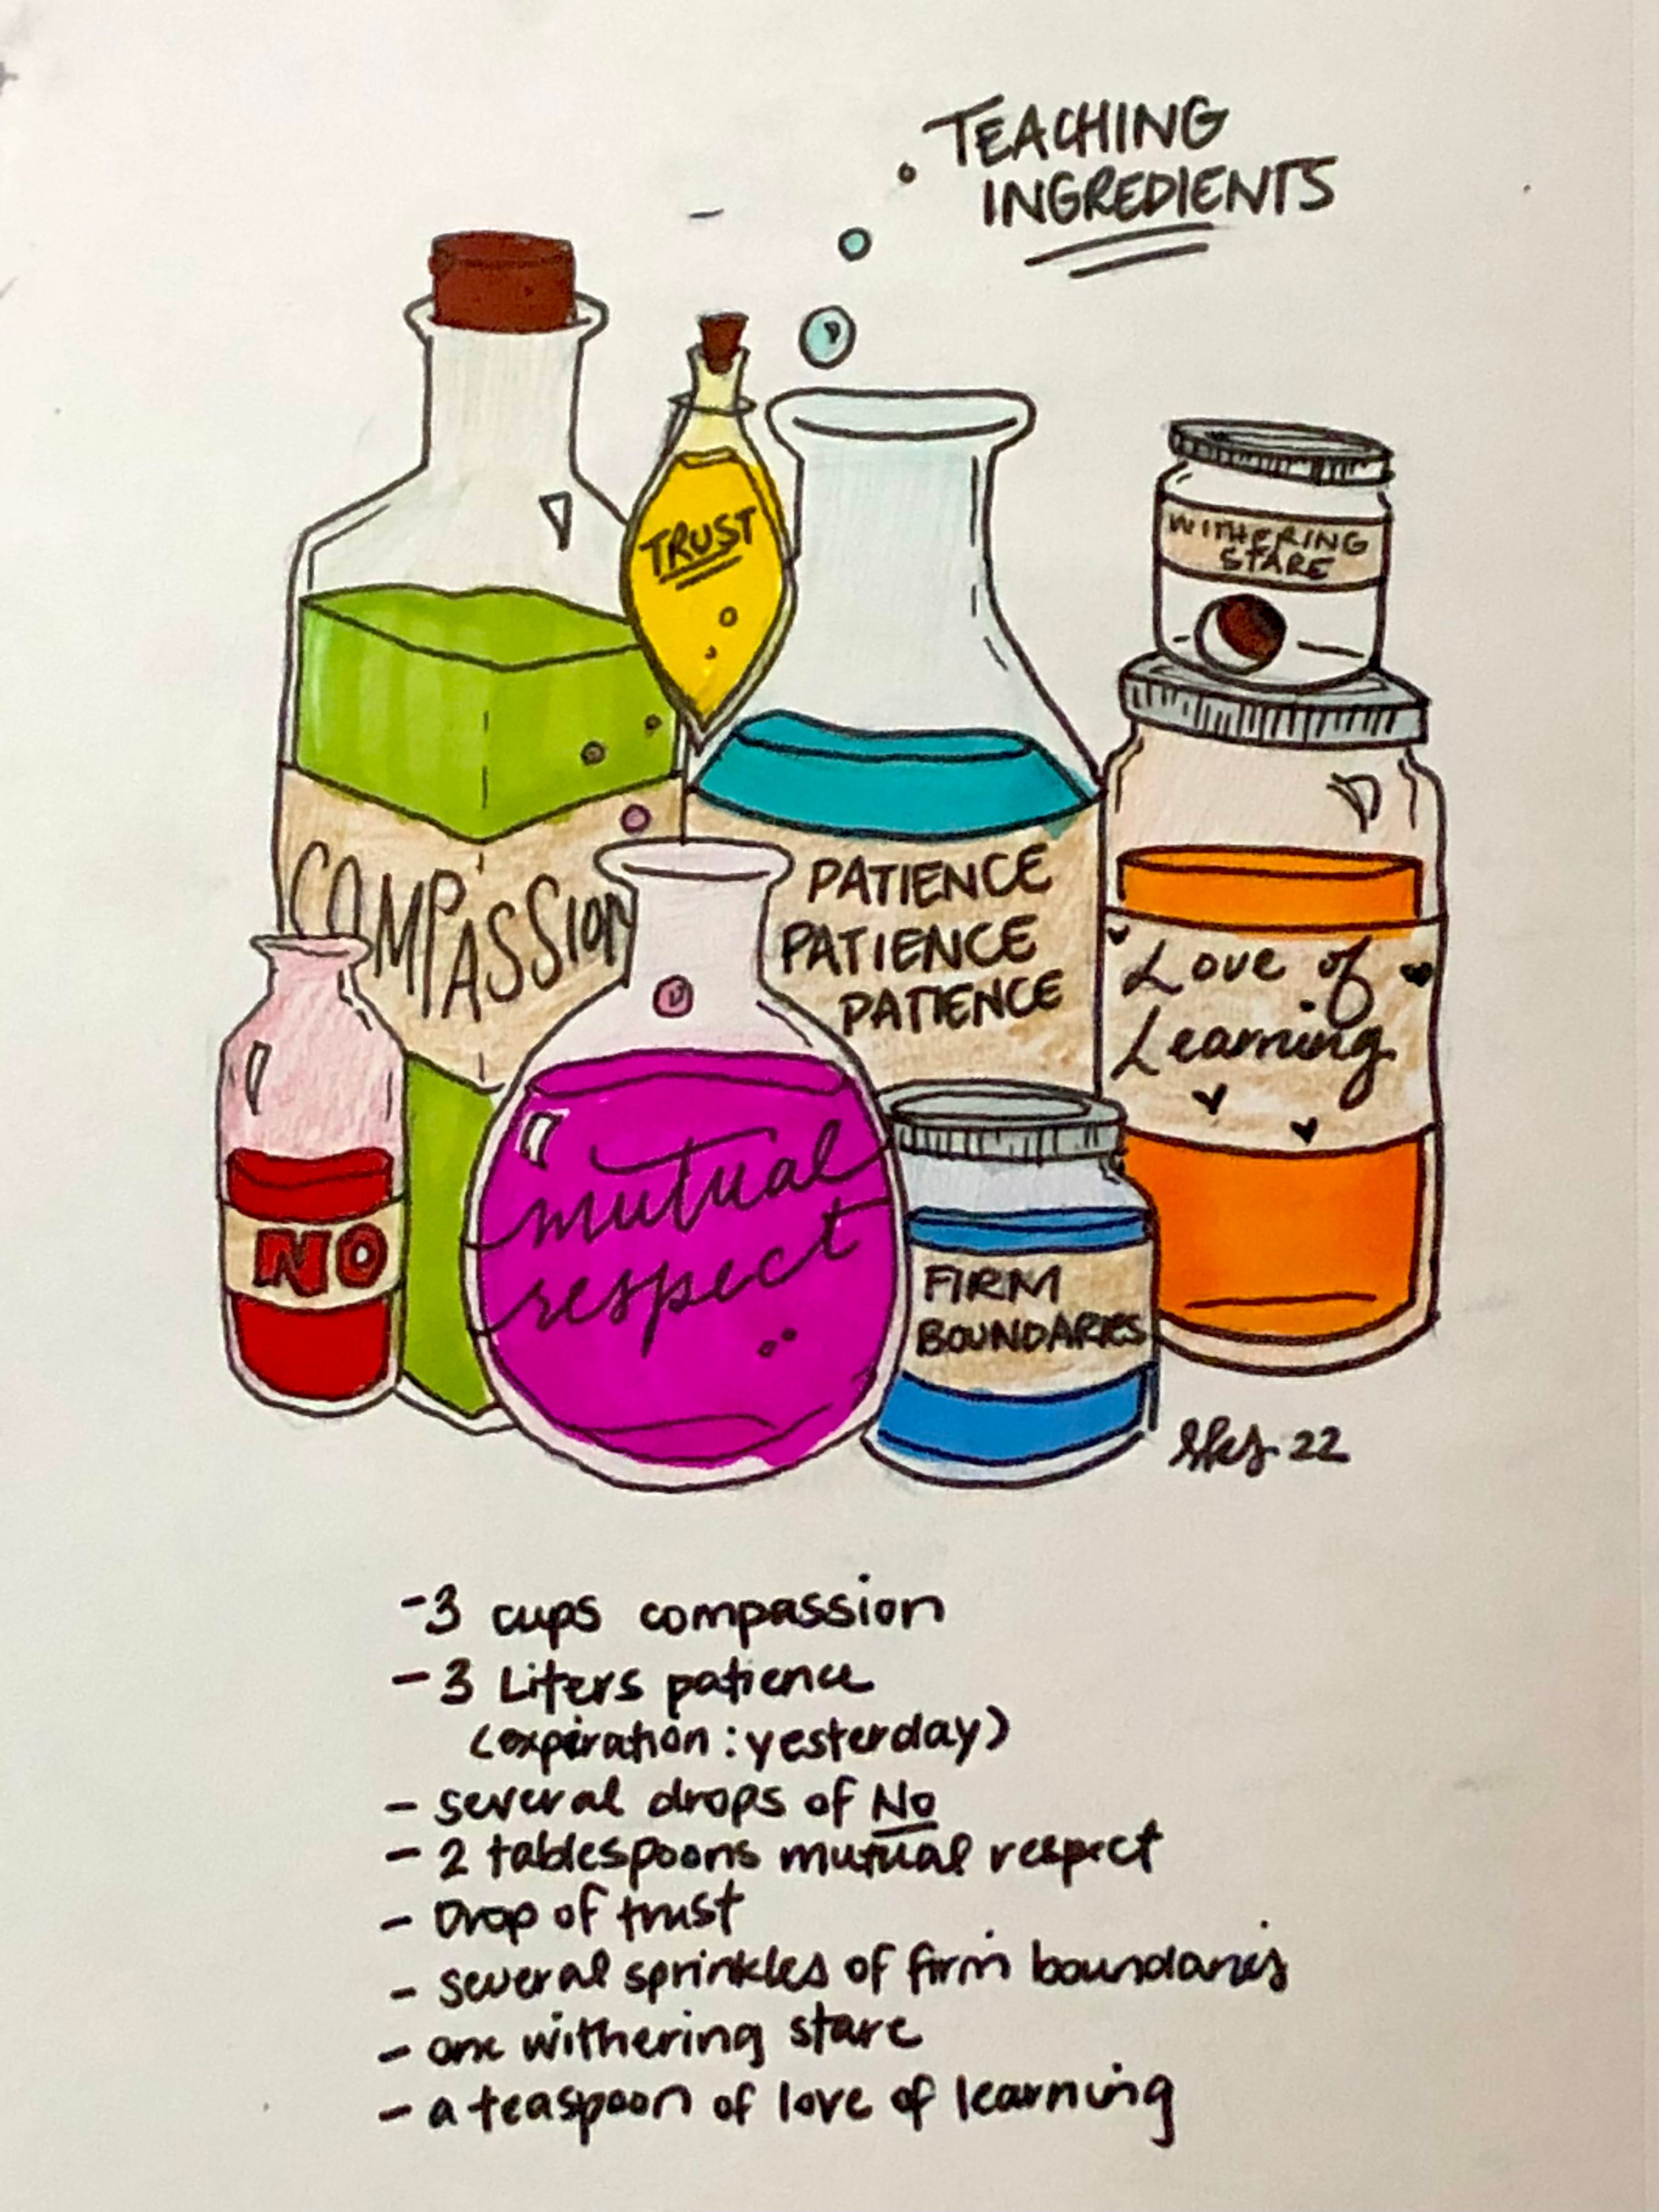 TEACHING
INGREDIENTS
TRUST
WITHERING
STARE
COMPASSION
PATIENCE
PATIENCE
PATIENCE
Love of
Learning
NO
mutual
respect
FIRM
BOUNDARIES
22
-3 cups compassion
-3 Liters patience
(expiration: yesterday)
- several drops of No
- 2 tablespoons mutual respect
- Drop of trust
- several sprinkles of firm boundaries
- one withering stare
- a teaspoon of love of learning